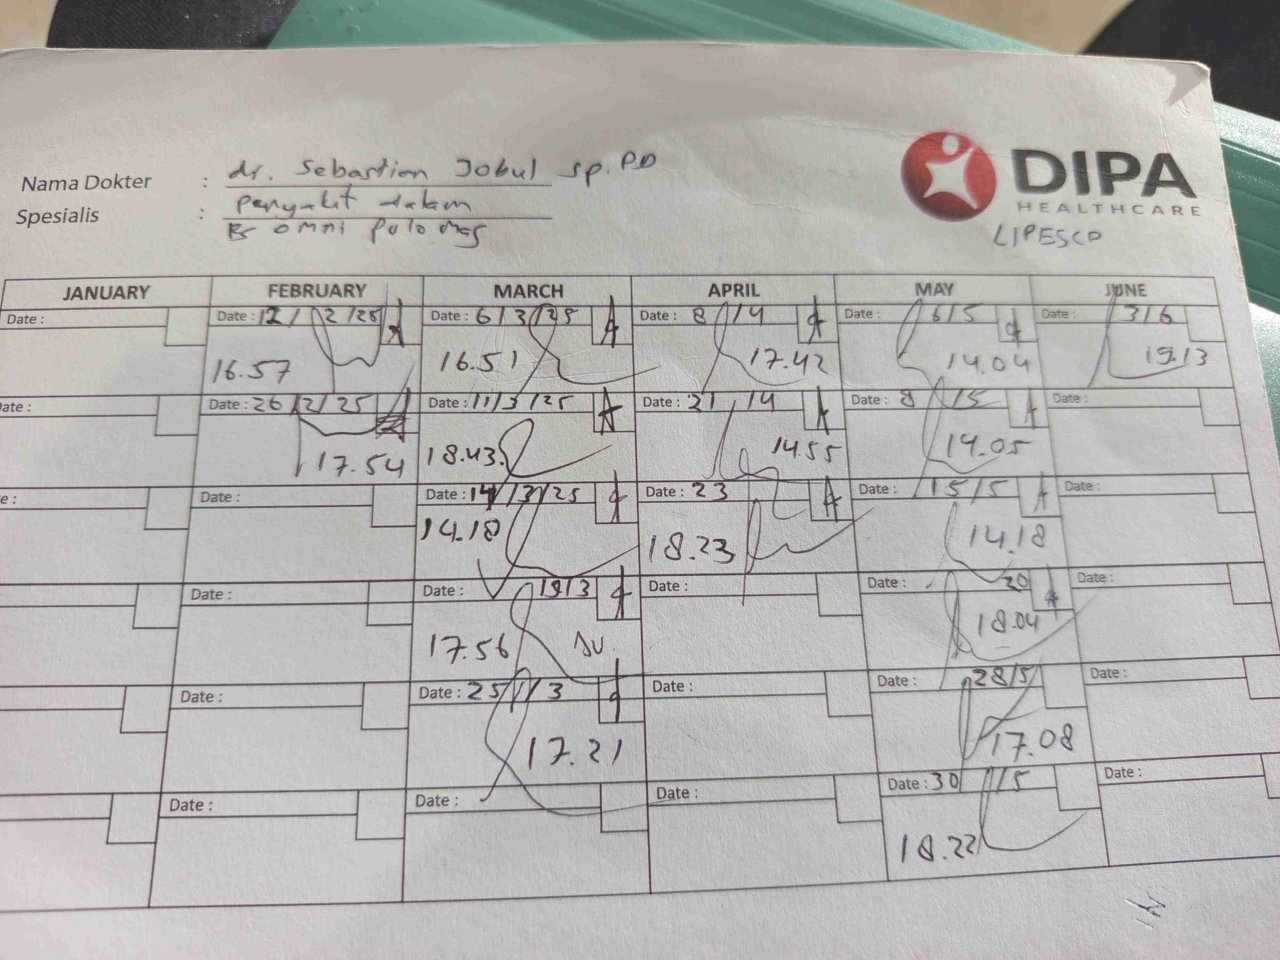 Nama Dokter : dr. Sebastian Jobul Sp.PD
Spesialis : Penyakit dalam
RS omni Pulomas
DIPA
HEALTHCARE
LIPESCO
JANUARY FEBRUARY MARCH APRIL MAY JUNE
Date : Date : 12/2/25 Date : 6/3/25 Date : 8/4 Date : 6/5 Date : 3/6
16.57 16.51 17.42 14.04 19.13
Date : Date : 26/2/25 Date : 11/3/25 Date : 21/4 Date : 8/5 Date :
17.54 18.43 14.55 14.05
e : Date : Date : 14/3/25 Date : 23 Date : 15/5 Date :
14.18 18.23 14.18
Date : Date : 19/3 Date : Date : 20 Date :
17.56 18.04
Date : Date : 25/3 Date : Date : 28/5 Date :
17.21 17.08
Date : Date : Date : Date : 30/5 Date :
18.22